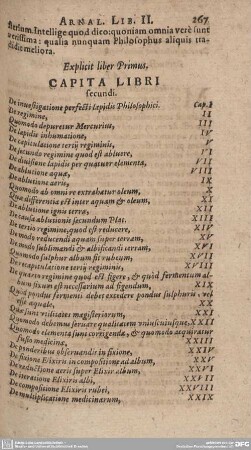 ARNAL. LIB. II. 267
strium. Intellige quod dico: quoniam omnia verè sunt
verissima: qualia nunquam Philosophus aliquis tra-
didit meliora.
Explicit liber Primus,
CAPITA LIBRI
secundi.
De investigatione perfecti lapidis Philosophici. Cap. I
De regimine, II
Quomodo depuretur Mercurius, III
De lapidis inhumatione, IV
De capitulatione tertij regiminis, V
De secundo regimine quod est abluere, VI
De divisione lapidis per quatuor elementa, VII
De ablutione aquæ, VIII
De ablutione aëris, IX
Quomodo ab omni re extrahatur oleum, X
Quæ differentia est inter aquam & oleum, XI
De ablutione ignis & terræ, XII
De causa ablutionis secundum Plat. XIII
De tertio regimine, quod est reducere, XIV
De modo reducendi aquam super terram, XV
De modo sublimandi & albificandi terram, XVI
Quomodo sulphur album sit rubeum, XVII
De recapitulatione tertij regiminis, XVIII
De quarto regimine quod est figere, & quòd fermentum al-
bum fixum est necessarium ad figendum, XIX
Quod pondus fermenti debet excedere pondus sulphuris,
vel æquale, XX
Quæ sunt utilitates magisteriorum, XXI
Quomodo debemus servare qualitatem uniuscuiusque, XXII
Quomodo elementa sunt corrigenda, & quomodo acquiratur
fusio medicinæ, XXIII
De ponderibus observandis in fixione, XXIV
De fixione Elixirii in compositione ad album, XXV
De reductione aëris super Elixir album, XXVI
De iteratione Elixiris albi, XXVII
De compositione Elixiris rubei, XXVIII
De multiplicatione medicinarum, XXIX
DFG